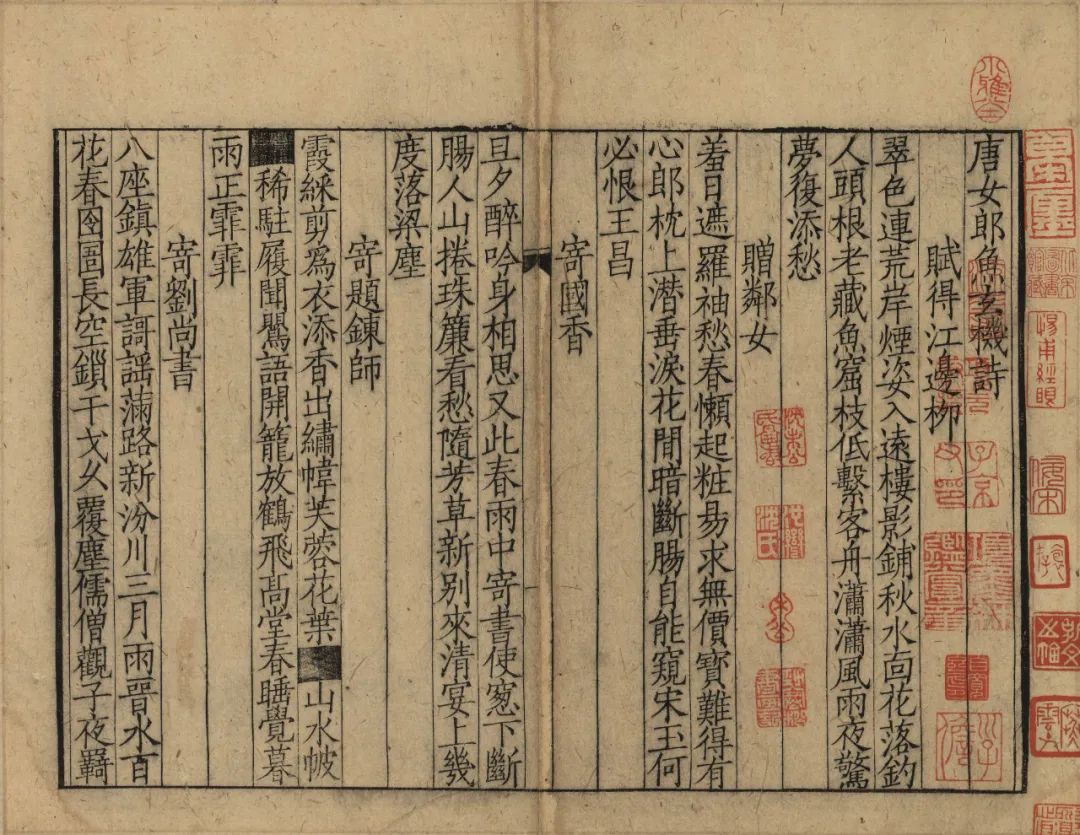 唐女郎魚玄機詩
賦得江邊柳
翠色連荒岸煙姿入遠樓影鋪秋水面花落釣
人頭根老藏魚窟枝低繫客舟瀟瀟風雨夜驚
夢復添愁
贈鄰女
羞日遮羅袖愁春懶起粧易求無價寶難得有
心郎枕上潛垂淚花間暗斷腸自能窺宋玉何
必恨王昌
寄國香
旦夕醉吟身相思又此春雨中寄書使窻下斷
腸人山捲珠簾看愁隨芳草新別來清宴上幾
度落梁塵
寄題鍊師
霞綵剪為衣添香出繡幃芙蓉花葉山水帔
稀駐履聞鸎語開籠放鶴飛高堂春睡覺暮
雨正霏霏
寄劉尚書
八座鎮雄軍謌謡滿路新汾川三月雨晉水百
花春囹圄長空鎖干戈久覆塵儒僧觀子夜羇